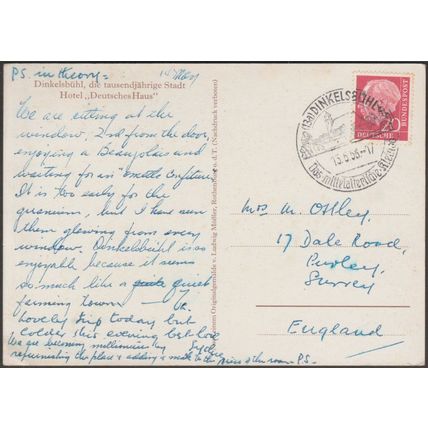 P.S. in theory =
Dinkelsbühl, die tausendjährige Stadt
Hotel „Deutsches Haus"
We are sitting at the
window, 2nd from the door,
enjoying a Beaujolais and
waiting for an
It is too early for the
geranium, but I have seen
them glowing from every
window. Dinkelsbühl is so
enjoyable because it seems
so much like a quite quiet
farming town
lovely trip today but
colder this evening best love
We are becoming millionaires by
refurnishing the place & adding a mark to the price of the room P.S.
Originalgemälde v. Ludwig Mößler, Rothenburg o. d. T. (Nachdruck verboten)
(13a) DINKELSBÜHL
13.5.55.-17
Das mittelalterliche
DEUTSCHE
BUNDESPOST
20
Mrs M. Ottley,
17 Dale Road,
Purley,
Surrey
England